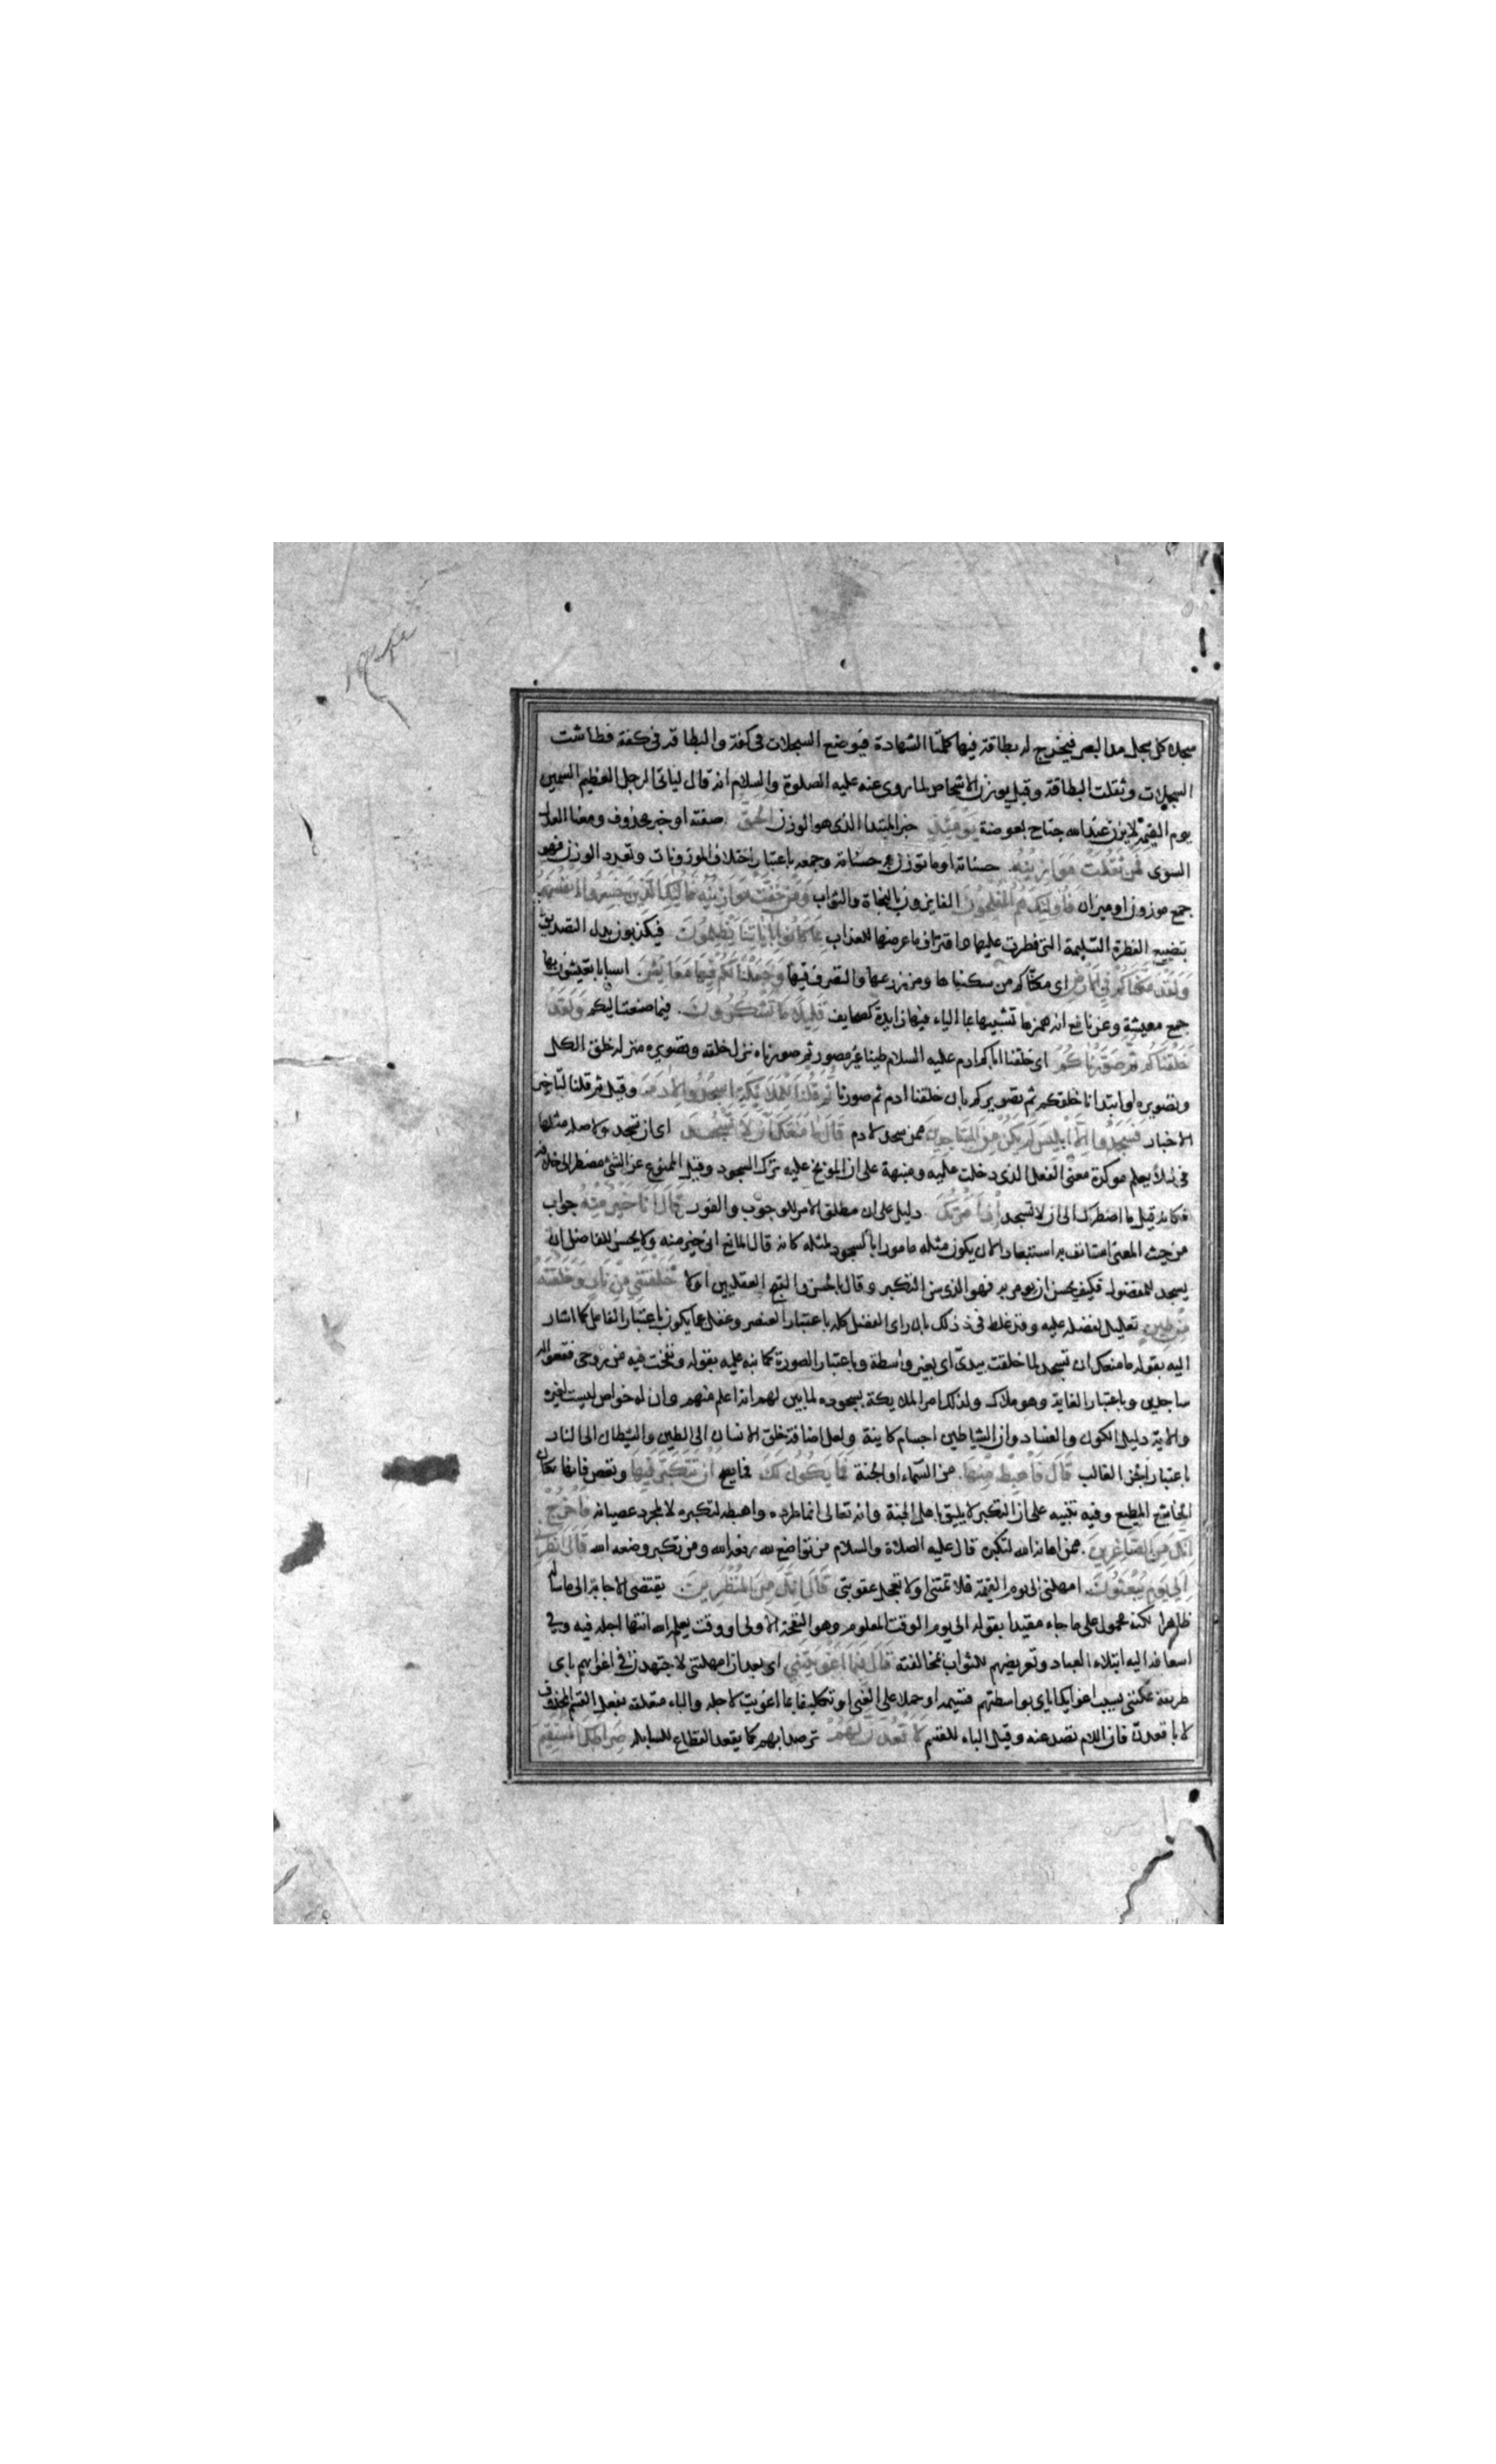 سجلا كل سجل مد البصر فيخرج له بطاقة فيها كلمتا الشهادة فيوضع السجلات في كفة والبطاقة في كفة فطاشت
السجلات وثقلت البطاقة وقيل يوزن الاشخاص لما روى عنه عليه الصلوة والسلام انه قال لياتي الرجل العظيم السمين
يوم القيمة لا يزن عند الله جناح بعوضة يومئذ خبر المبتدا الذى هو الوزن الحق صفته او خبر محذوف ومعناه العدل
السوى فمن ثقلت موازينه حسناته او ما توزن به حسناته وجمعه باعتبار اختلاف الموزونات وتعدد الوزن فهو
جمع موزون او ميزان فاولئك هم المفلحون الفايزون بالنجاة والثواب ومن خفت موازينه فاولئك الذين خسروا انفسهم
بتضييع الفطرة السليمة التى فطرت عليها واقتراف ما عرضها للعذاب بما كانوا باياتنا يظلمون فيكذبون بدل التصديق
ولقد مكناكم في الارض اى مكناكم من سكناها ومن زرعها والتصرف فيها وجعلنا لكم فيها معايش اسبابا تعيشون بها
جمع معيشة وعن نافع انه همزها تشبيها بما الياء فيها زايدة كصحايف قليلا ما تشكرون فيما صنعت اليكم ولقد
خلقناكم ثم صورناكم اى خلقنا اباكم ادم عليه السلام طينا غير مصور ثم صورناه نزل خلقه وتصويره منزلة خلق الكل
وتصويره او ابتدانا خلقكم ثم تصويركم بان خلقنا ادم ثم صورناه ثم قلنا للملايكة اسجدوا لادم وقيل ثم قلنا لتاخير
الاخبار فسجدوا الا ابليس لم يكن من الساجدين ممن سجد لادم قال ما منعك ان لا تسجد اى ان تسجد ولا صلة مثلها
في لئلا يعلم موكدة معنى الفعل الذى دخلت عليه ومنبهة على ان الموبخ عليه ترك السجود وقيل الممنوع عن الشئ مضطر الى خلافه
فكانه قيل ما اضطرك الى ان لا تسجد اذ امرتك دليل على ان مطلق الامر للوجوب والفور قال انا خير منه جواب
من حيث المعنى استانف به استبعادا لان يكون مثله مامورا بالسجود لمثله كانه قال المانع انى خير منه ولا يحسن للفاضل ان
يسجد للمفضول فكيف يحسن ان يومر به فهو الذى سن التكبر وقال بالحسن والقبح العقليين اولا خلقتنى من نار وخلقته
من طين تعليل لفضله عليه وقد غلط في ذلك بان راى الفضل كله باعتبار العنصر وغفل عما يكون باعتبار الفاعل كما اشار
اليه بقوله ما منعك ان تسجد لما خلقت بيدى اى بغير واسطة وباعتبار الصورة كما نبه عليه بقوله ونفخت فيه من روحى فقعوا له
ساجدين وباعتبار الغاية وهو ملاكه ولذلك امر الملايكة بسجوده لما بين لهم انه اعلم منهم وان له خواص ليست لغيره
والاية دليل الكون والفساد وان الشياطين اجسام كاينة ولعل اضافة خلق الانسان الى الطين والشيطان الى النار
باعتبار الجزء الغالب قال فاهبط منها من السماء او الجنة فما يكون لك فما يصح ان تتكبر فيها وتعصى فانها مكان
الخاشع المطيع وفيه تنبيه على ان التكبر لا يليق باهل الجنة وانه تعالى انما طرده واهبطه لتكبره لا لمجرد عصيانه فاخرج
انك من الصاغرين ممن اهانه الله لتكبره قال عليه الصلاة والسلام من تواضع لله رفعه الله ومن تكبر وضعه الله قال انظرنى
الى يوم يبعثون امهلنى الى يوم القيمة فلا تمتنى او لا تعجل عقوبتى قال انك من المنظرين يقتضى الاجابة الى ما ساله
ظاهرا لكنه محمول على ما جاء مقيدا بقوله الى يوم الوقت المعلوم وهو النفخة الاولى او وقت يعلم الله انتهاء اجله فيه وفي
اسعافه اليه ابتلاء العباد وتعريضهم للثواب بمخالفته قال فبما اغويتنى اى بعد ان امهلتنى لاجتهدن في اغوايهم باى
طريقة تمكننى بسبب اغوايك اياى بواسطتهم تسمية او حملا على الغى او تكليفا بما اغويت لاجله والباء متعلقة بفعل القسم المحذوف
لا باقعدن فان اللام تصد عنه وقيل الباء للقسم لاقعدن لهم ترصدا بهم كما يقعد القطاع للسابلة صراطك المستقيم